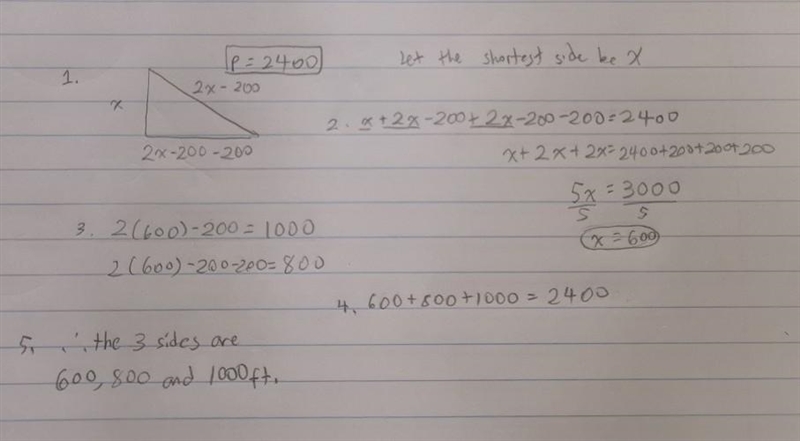 P = 2400
Let the shortest side be x
1.
2x - 200
x
2x-200-200
2. x + 2x -200 + 2x -200 -200 = 2400
x + 2x + 2x = 2400+200+200+200
5x = 3000
5 5
x = 600
3. 2(600)-200 = 1000
2(600)-200-200= 800
4. 600+800+1000 = 2400
5. ∴ the 3 sides are
600, 800 and 1000ft.